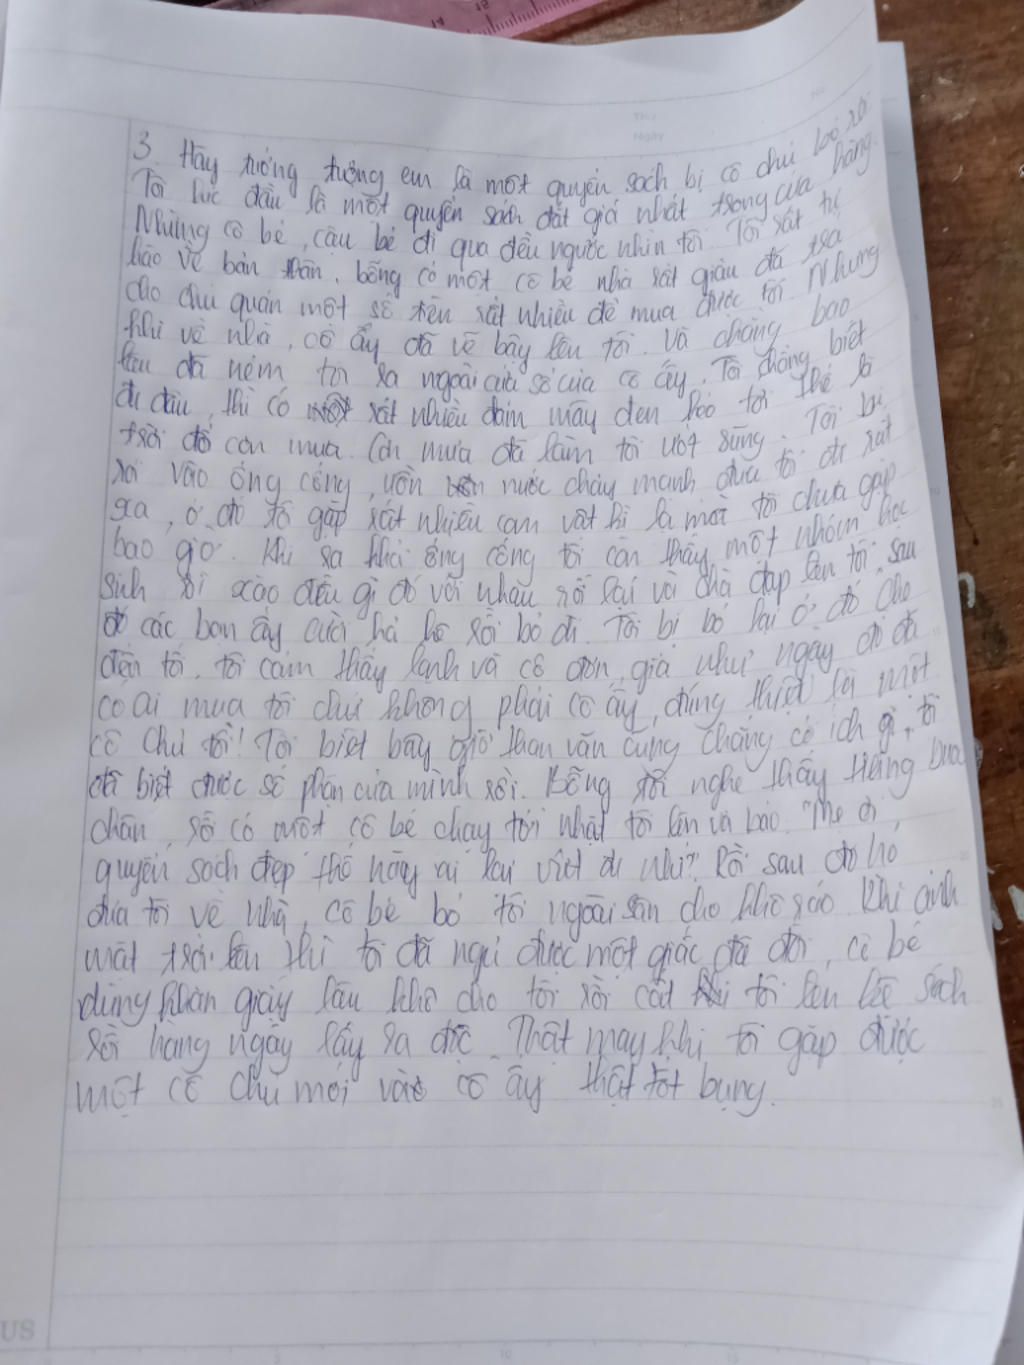 3. Hãy tưởng tượng em là một quyển sách bị cô chủ bỏ rơi
Tôi lúc đầu là một quyển sách đắt giá nhất trong cửa hàng.
Những cô bé, cậu bé đi qua đều ngước nhìn tôi. Tôi rất tự
hào về bản thân, bỗng có một cô bé nhà rất giàu đã trả
cho chủ quán một số tiền rất nhiều để mua được tôi. Nhưng
khi về nhà, cô ấy đã vẽ bậy lên tôi. Và chẳng bao
lâu đã ném tôi ra ngoài cửa sổ của cô ấy. Tôi chẳng biết
đi đâu, thì có rất nhiều đám mây đen kéo tới thế là
trời đổ cơn mưa. Cơn mưa đã làm tôi ướt sũng. Tôi bị
rơi vào ống cống, nước chảy mạnh đưa tôi đi rất
xa, ở đó tôi gặp rất nhiều con vật kì lạ mà tôi chưa gặp
bao giờ. Khi ra khỏi ống cống tôi còn thấy một nhóm học
sinh xì xào điều gì đó với nhau rồi lại và chà đạp lên tôi, sau
đó các bạn ấy cười hả hê rồi bỏ đi. Tôi bị bỏ lại ở đó cho
đến tối, tôi cảm thấy lạnh và cô đơn, giá như ngày đó đã
có ai mua tôi chứ không phải cô ấy, đúng thật là một
cô chủ tồi! Tôi biết bây giờ than vãn cũng chẳng có ích gì, tôi
đã biết được số phận của mình rồi. Bỗng tôi nghe thấy tiếng bước
chân, rồi có một cô bé chạy tới nhặt tôi lên và bảo "Mẹ ơi,
quyển sách đẹp thế này ai lại vứt đi nhỉ?". Rồi sau đó họ
đưa tôi về nhà, cô bé bỏ tôi ngoài sân cho khô ráo. Khi ánh
mặt trời lên thì tôi đã ngủ được một giấc đã đời, cô bé
dùng khăn giấy lau khô cho tôi rồi cất tôi lên kệ sách
rồi hàng ngày lấy ra đọc. Thật may khi tôi gặp được
một cô chủ mới và cô ấy thật tốt bụng.
US